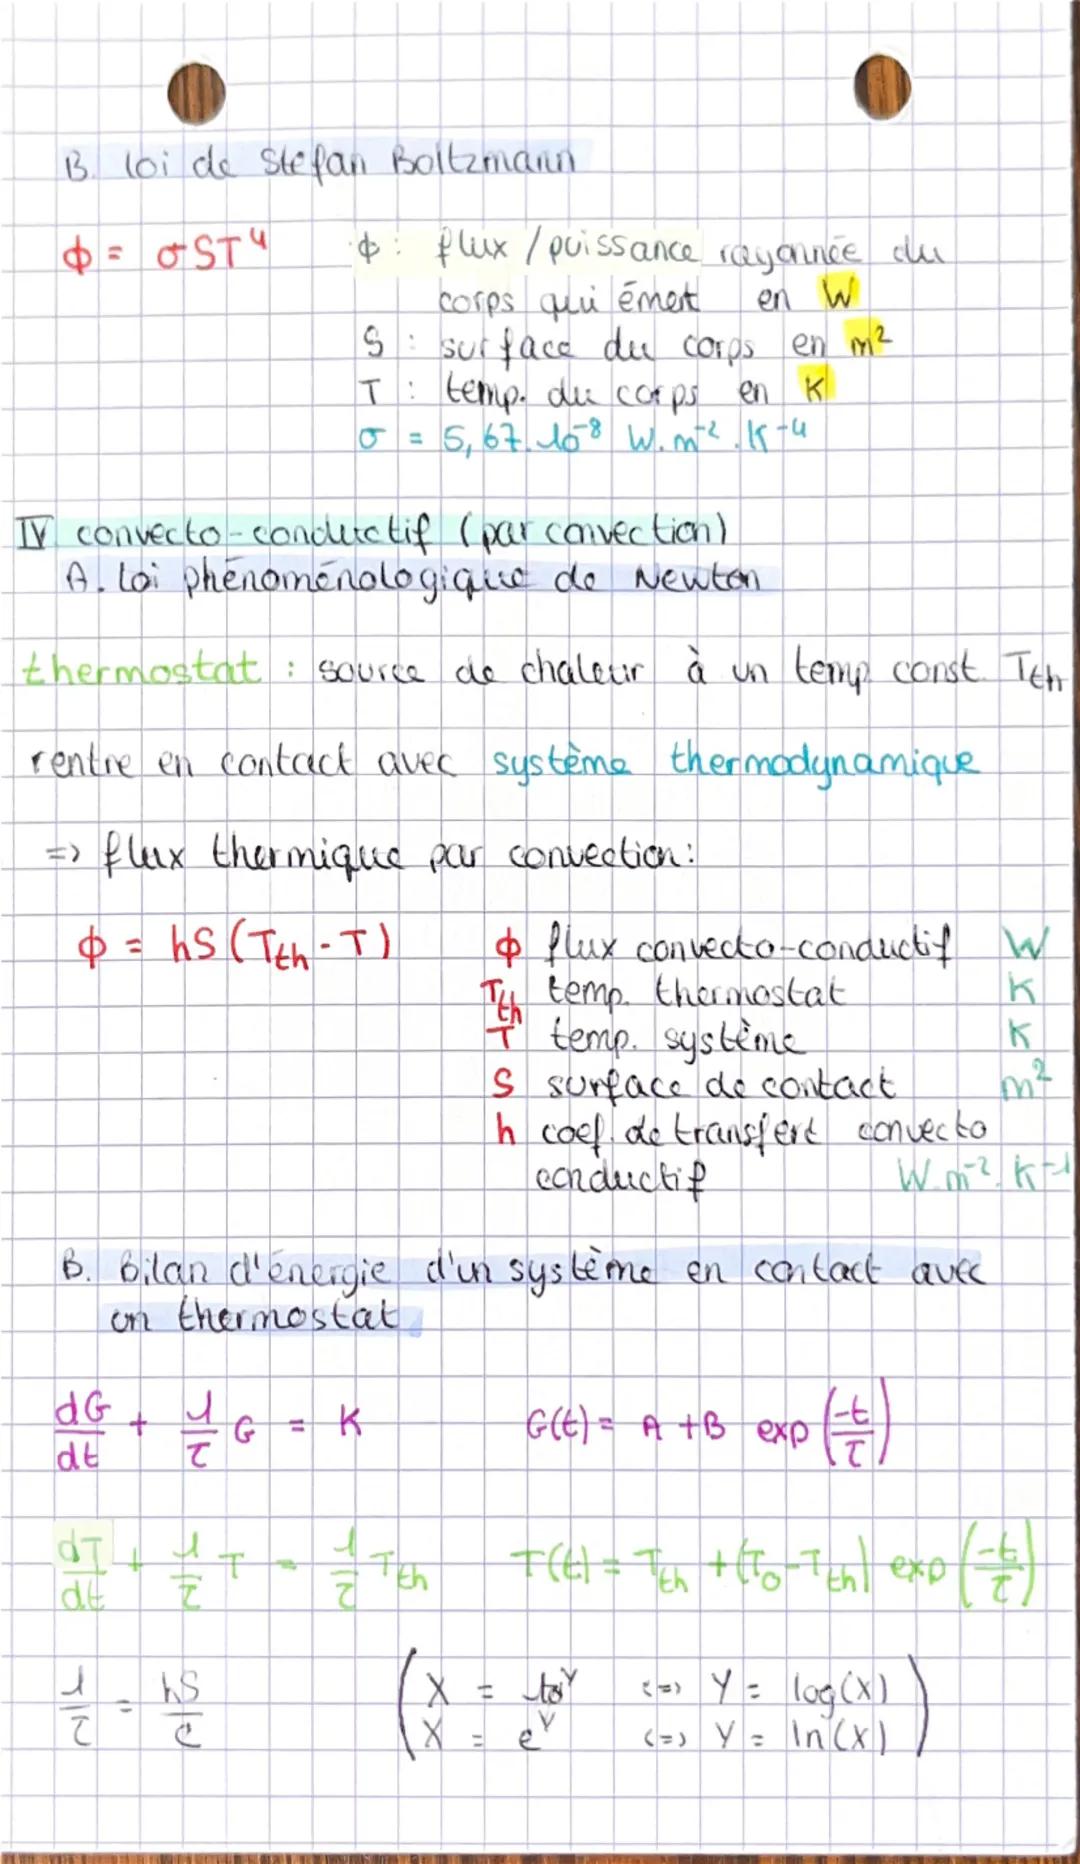 B. loi de Stefan Boltzmann
ɸ = σST⁴
ɸ : flux / puissance rayonnée du
corps qui émet en W
S : surface du corps en m²
T : temp. du corps en K
σ = 5,67.10⁻⁸ W.m⁻².K⁻⁴
IV convecto-conductif (par convection)
A. Loi phénoménologique de Newton
thermostat : source de chaleur à un temp const. Tth
rentre en contact avec système thermodynamique
=> flux thermique par convection:
ɸ = hS (Tth - T)
ɸ flux convecto-conductif W
Tth temp. thermostat K
T temp. système K
S surface de contact m²
h coef. de transfert convecto
conductif W.m⁻².K⁻¹
B. Bilan d'énergie d'un système en contact avec
un thermostat
dG/dt + 1/τ G = K G(t) = A + B exp(-t/τ)
dT/dt + 1/τ T = 1/τ Tth T(t) = Tth + (T₀-Tth) exp(-t/τ)
1/τ = hS/C
(X = 10^Y <=> Y = log(X)
X = e^Y <=> Y = ln(X))